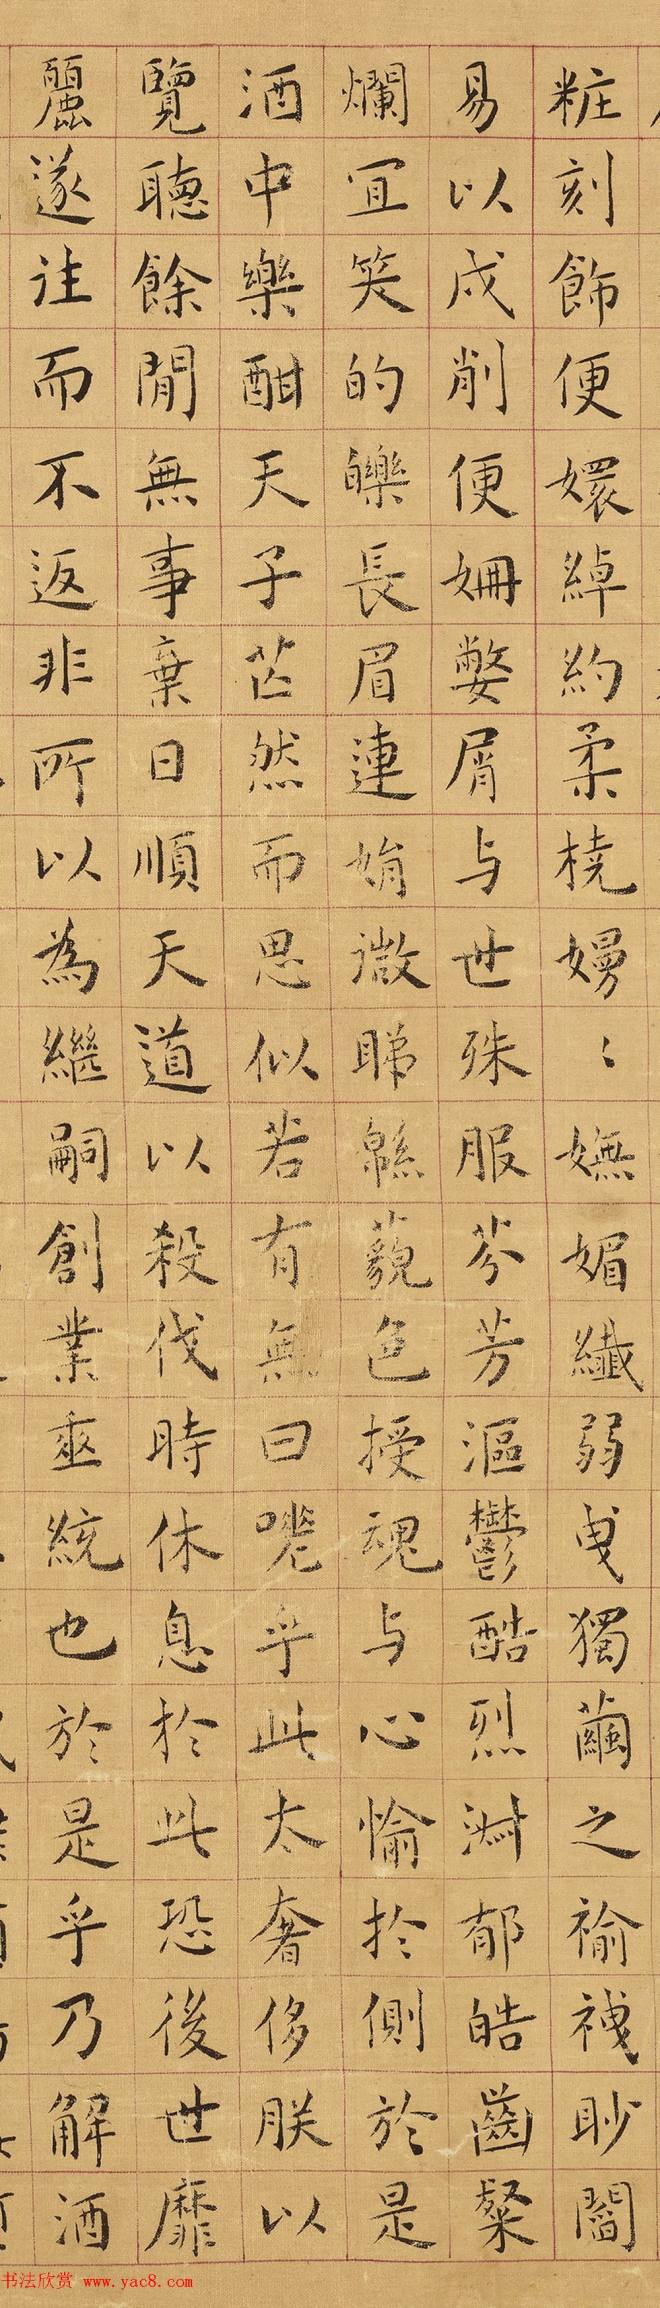 粧刻飾便嬛綽約柔橈嫚〻嫵媚纖弱曳獨繭之褕袣眇閻
易以戌削便姍嫳屑与世殊服芬芳漚鬱酷烈淑郁皓齒粲
爛宜笑的皪長眉連娟微睇緜藐色授魂与心愉於側於是
酒中樂酣天子芒然而思似若有無曰嗟乎此太奢侈朕以
覽聽餘閒無事棄日順天道以殺伐時休息於此恐後世靡
麗遂注而不返非所以為繼嗣創業垂統也於是乎乃解酒
书法欣赏 www.yac8.com